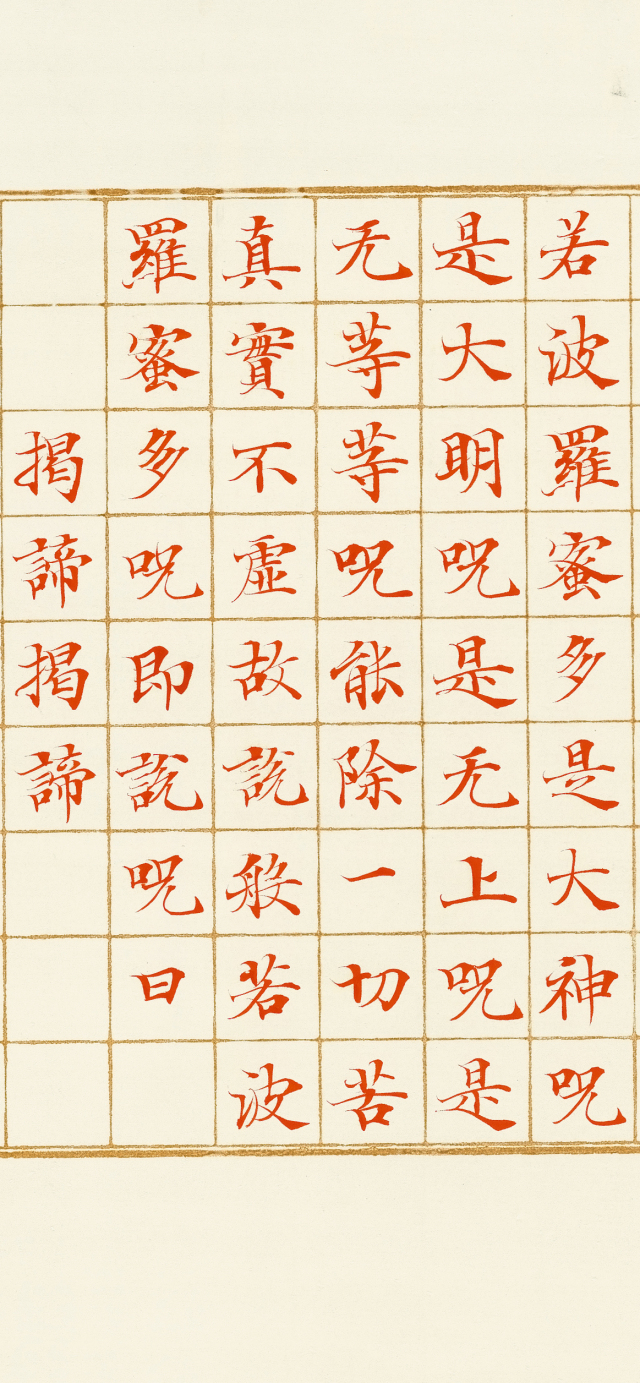 若波羅蜜多是大神呪
是大明呪是无上呪是
无等等呪能除一切苦
真實不虛故說般若波
羅蜜多呪即說呪曰
揭諦揭諦